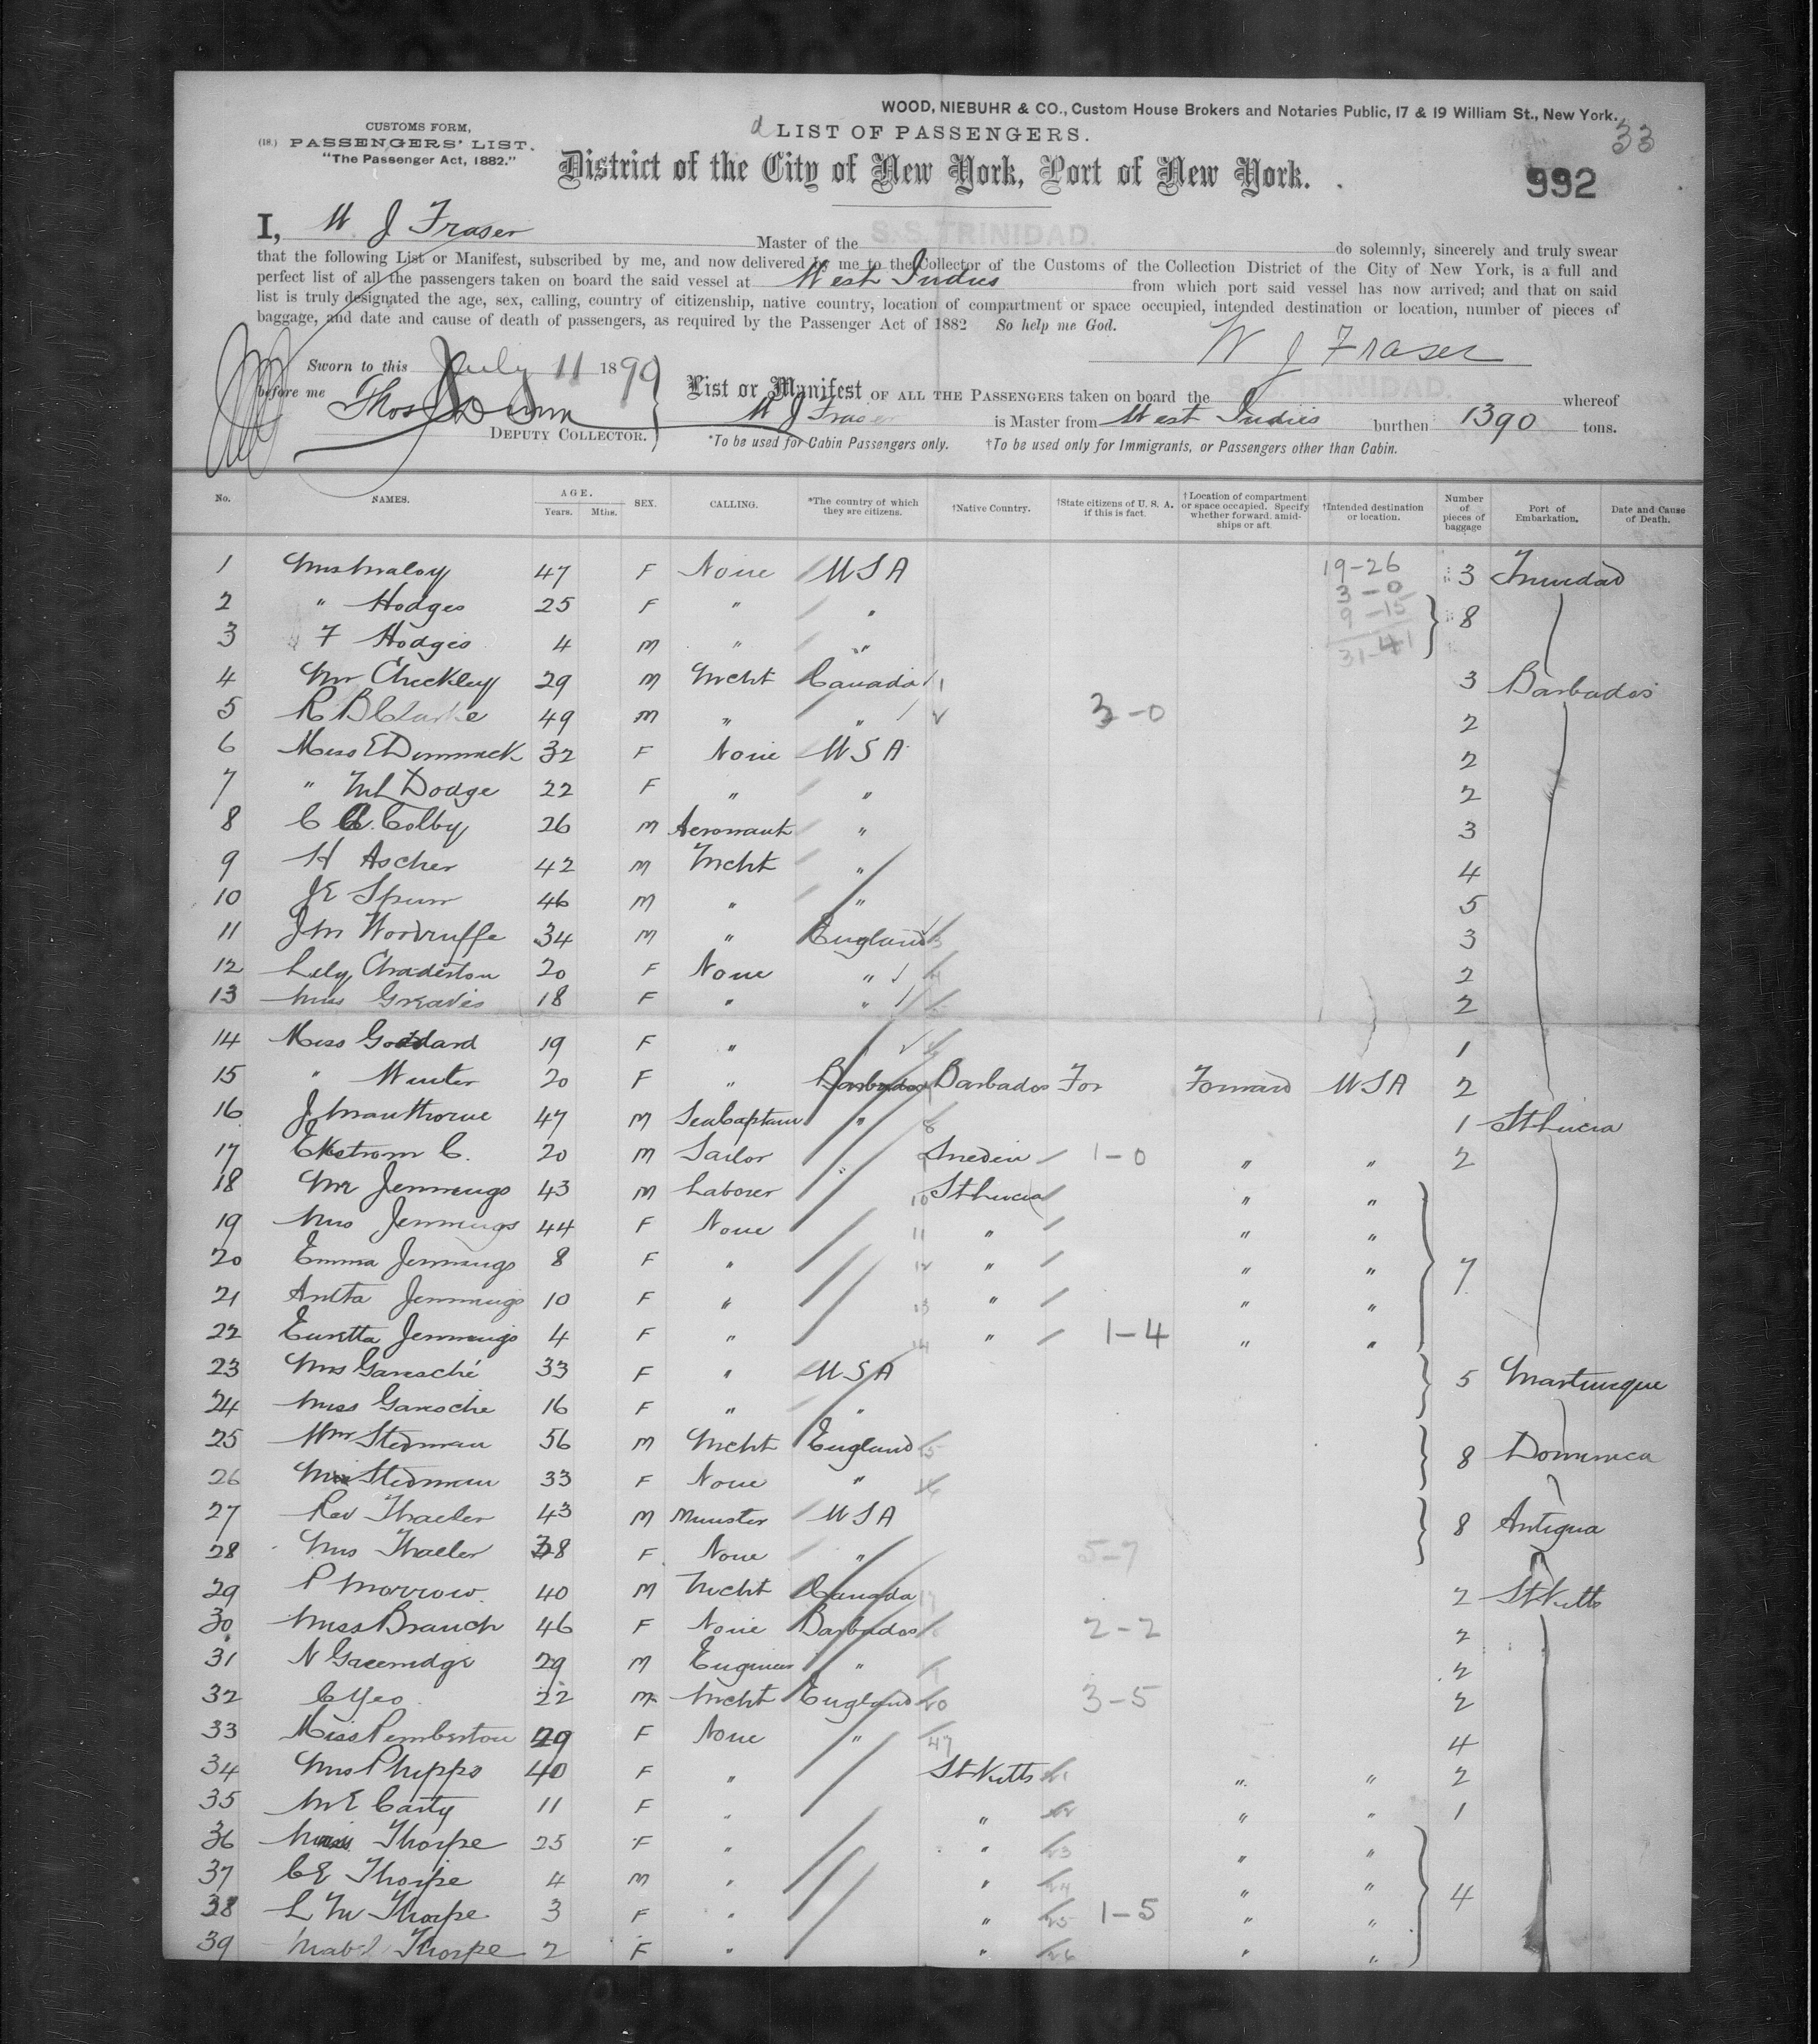 WOOD, NIEBUHR & CO., Custom House Brokers and Notaries Public, 17 & 19 William St., New York.
33
CUSTOMS FORM,
(18.) PASSENGERS' LIST.
"The Passenger Act, 1882."
LIST OF PASSENGERS.
District of the City of New York, Port of New York.
992
I, W J Fraser Master of the S.S. TRINIDAD. do solemnly, sincerely and truly swear
that the following List or Manifest, subscribed by me, and now delivered by me to the Collector of the Customs of the Collection District of the City of New York, is a full and
perfect list of all the passengers taken on board the said vessel at West Indies from which port said vessel has now arrived; and that on said
list is truly designated the age, sex, calling, country of citizenship, native country, location of compartment or space occupied, intended destination or location, number of pieces of
baggage, and date and cause of death of passengers, as required by the Passenger Act of 1882 So help me God.
W J Fraser
Sworn to this July 11 1899
before me Thos Dunn
DEPUTY COLLECTOR.
List or Manifest OF ALL THE PASSENGERS taken on board the S.S. TRINIDAD. whereof
W J Fraser is Master from West Indies burthen 1390 tons.
*To be used for Cabin Passengers only. †To be used only for Immigrants, or Passengers other than Cabin.
No. NAMES. AGE. Years. Mths. SEX. CALLING. *The country of which they are citizens. †Native Country. †State citizens of U. S. A. if this is fact. †Location of compartment or space occupied. Specify whether forward, amidships or aft. †Intended destination or location. Number of pieces of baggage Port of Embarkation. Date and Cause of Death.
1 Mrs Maloy 47 F None USA 19-26 3 Trinidad
2 " Hodges 25 F " " 3-0 9-15 8
3 F Hodges 4 M " " 31-41
4 Mr Checkley 29 M Mcht Canada 1 3 Barbados
5 R B Clarke 49 M " " 2 3-0 2
6 Miss E Dimmick 32 F None USA 2
7 " M L Dodge 22 F " " 2
8 C A. Colby 26 M Aeronaut " 3
9 H Ascher 42 M Mcht " 4
10 J E Spurr 46 M " " 5
11 J M Woodruffe 34 M " England 3 3
12 Lily Chaderton 20 F None " 4 2
13 Miss Greaves 18 F " " 2
14 Miss Goddard 19 F " 1
15 " Hunter 20 F " Barbados Barbados For Forward USA 2
16 J Mauthorne 47 M Sea Captain " 8 1 St Lucia
17 Ekstrom C. 20 M Sailor Sweden 1-0 " " 2
18 Mr Jennings 43 M Laborer " 10 St Lucia " "
19 Mrs Jennings 44 F None 11 " " "
20 Emma Jennings 8 F " 12 " " " 7
21 Anita Jennings 10 F " 13 " " "
22 Euretta Jennings 4 F " 14 " 1-4 " "
23 Mrs Garesché 33 F " USA 5 Martinique
24 Miss Garesche 16 F " "
25 Mr Stedman 56 M Mcht England 15 8 Dominica
26 Mrs Stedman 33 F None " 16
27 Rev Thaeler 43 M Minister USA 8 Antigua
28 Mrs Thaeler 38 F None " 5-7
29 P Morrow 40 M Mcht Canada 17 2 St Kitts
30 Miss Branch 46 F None Barbados 2-2 2
31 N 29 M Engineer " 2
32 C Yeo 22 M Mcht England 20 3-5 2
33 Miss Pemberton 29 F None " 47 4
34 Mrs Phipps 40 F " St Kitts 21 " " 2
35 M E Carty 11 F " " 22 " " 1
36 Thorpe 25 F " " 23 " "
37 C E Thorpe 4 M " " 24 " "
38 L M Thorpe 3 F " " 25 1-5 " " 4
39 Mabel Thorpe 2 F " " 26 " "